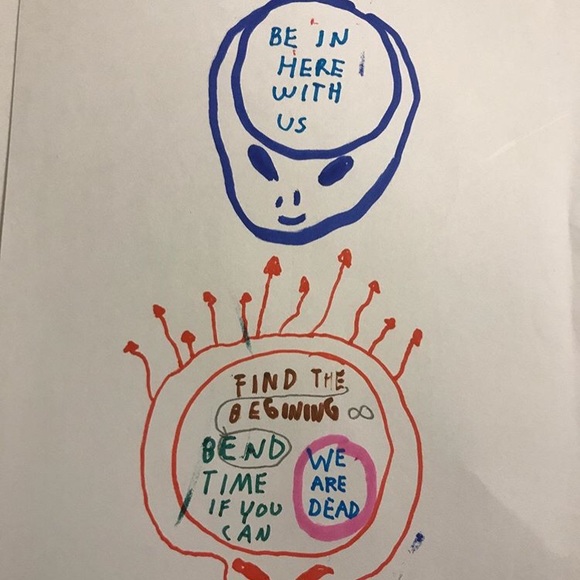 BE IN
HERE
WITH
US
FIND THE
BEGINING ∞
BEND
TIME
IF YOU
CAN
WE
ARE
DEAD